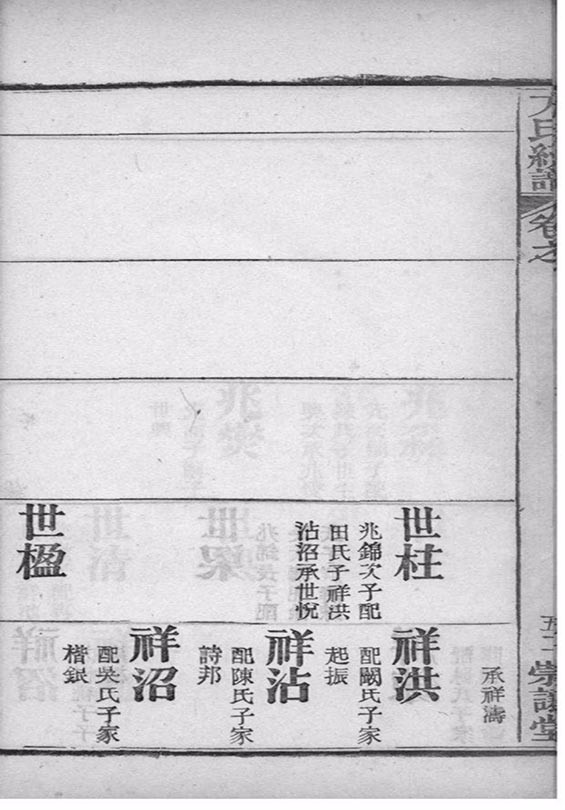 氏統譜
卷之
世柱
兆錦次子配
田氏子祥洪
沾沼承世悅
世楹
承祥濤
祥洪
配闞氏子家
起振
祥沾
配陳氏子家
詩邦
祥沼
配吳氏子家
楷銀